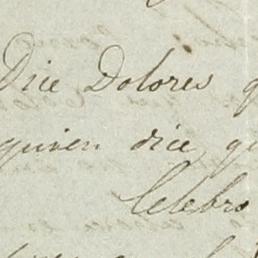 Dice Dolores q
quien dice qu
Celebro